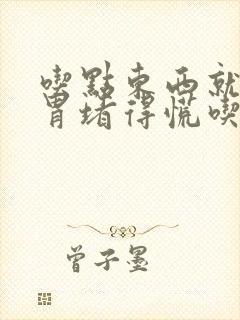 喫點東西就
胃堵得慌喫
曾子墨